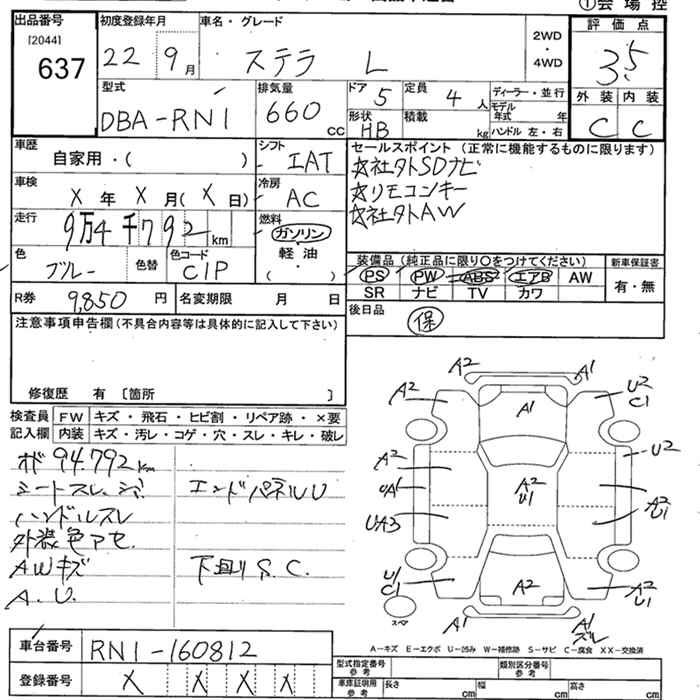 ①会場控
出品番号
[2044]
637
初度登録年月
22 9月
車名・グレード
ステラ L
2WD
・
4WD
評価点
3.5
外装 内装
C C
型式
DBA-RN1
排気量
660
cc
ドア 5
定員 4 人
形状 HB
積載 kg
ディーラー・並行
モデル年式 年
ハンドル 左・右
車歴
自家用・( )
シフト IAT
車検
X 年 X 月 ( X 日)
冷房 AC
走行
9万4千792 km
燃料
ガソリン
・
軽油
( )
色 ブルー
色替
色コード C1P
セールスポイント (正常に機能するものに限ります)
☆社外SDナビ
☆リモコンキー
☆社外AW
装備品 (純正品に限り〇をつけてください)
PS PW ABS エアB AW
SR ナビ TV カワ
新車保証書
有・無
R券 9,850 円
名変期限 月 日
後日品
保
注意事項申告欄 (不具合内容等は具体的に記入して下さい)
修復歴 有 〔箇所 〕
検査員記入欄
FW キズ・飛石・ヒビ割・リペア跡・×要
内装 キズ・汚レ・コゲ・穴・スレ・キレ・破レ
94,792km
シートスレ、
エンドパネルU
ハンドルスレ
外装色アセ
AWキズ
下回りS.C.
A.U.
A2 A1
A2 A1 U2
C1
A2 U2
UA1 A2 A2
U1 U1
UA3
U1 A2 A2
C1 U1
スペア
A1 A1
ズレ
A-キズ E-エクボ U-凹み W-補修跡 S-サビ C-腐食 XX-交換済
車台番号 RN1-160812
登録番号 X X X X
型式指定番号参考
類別区分番号参考
車庫証明用参考
長さ cm 幅 cm 高さ cm